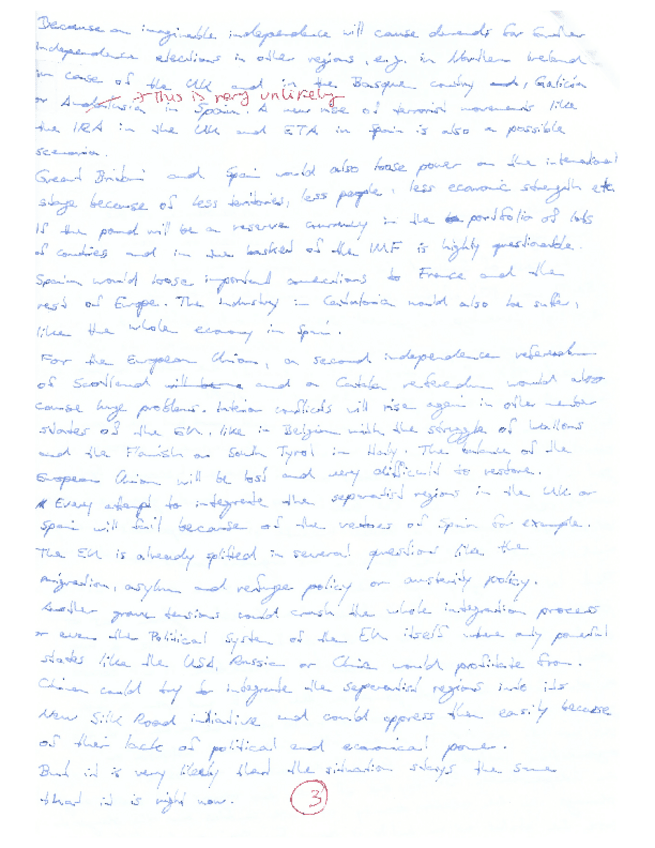 Because an imaginable independence will cause demands for further
independence elections in other regions, e.g. in Northern Ireland
in case of the UK and in the Basque country and, Galicia
→ This is very unlikely
or Andalusia in Spain. A new rise of terrorist movements like
the IRA in the UK and ETA in Spain is also a possible
scenario.
Great Britain and Spain would also loose power on the international
stage because of less territories, less people, less economic strength etc
If the pound will be a reserve currency in the portfolio of lots
of countries and in the basket of the IMF is highly questionable.
Spain would loose important connections to France and the
rest of Europe. The Industry in Catalonia would also be suffer,
like the whole economy in Spain.
For the European Union, a second independence referendum
of Scotland and a Catalan referendum would also
cause huge problems. Interior conflicts will rise again in other member
states of the EU, like in Belgium with the struggle of Wallons
and the Flamish or South Tyrol in Italy. The balance of the
European Union will be lost and very difficult to restore.
Every attempt to integrate the separatist regions in the UK or
Spain will fail because of the vetoes of Spain for example.
The EU is already splited in several questions like the
migration, asylum and refuge policy or austerity policy.
Another grave tensions could crash the whole integration process
or even the Political System of the EU itself where only powerful
states like the USA, Russia or China would profitate from.
China could try to integrate the separatist regions into its
New Silk Road initiative and could oppress them easily because
of their lack of political and economical power.
But it is very likely that the situation stays the same
that it is right now.
3